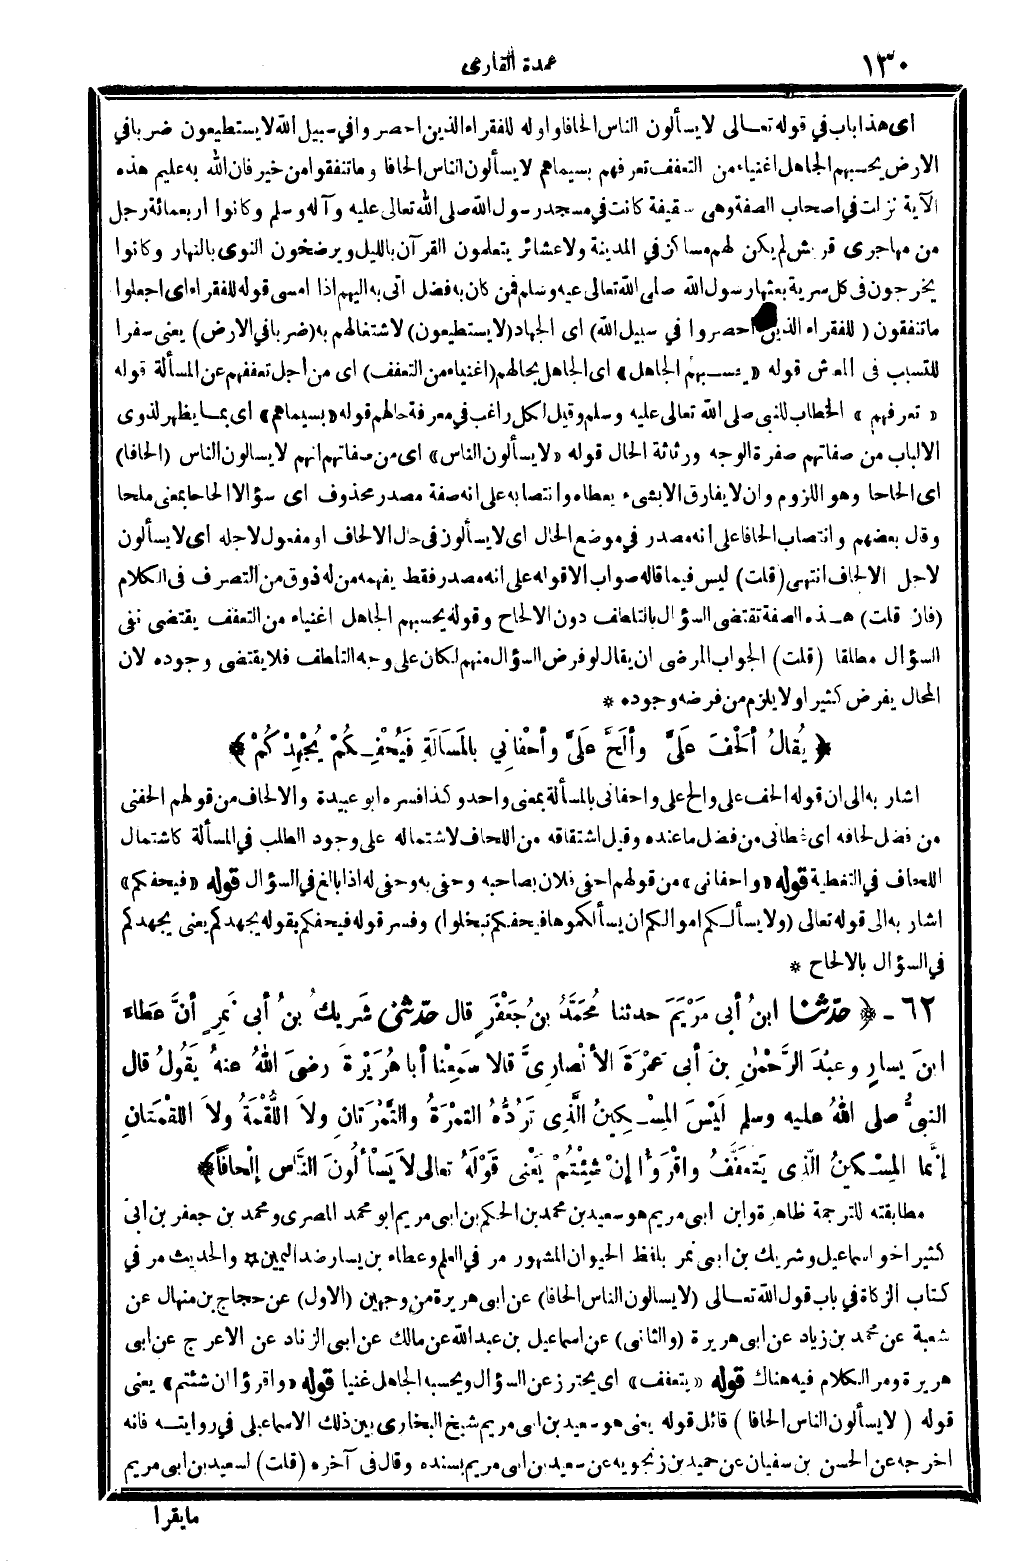 ١٣٠
عمدة القارى
اى هذا باب في قوله تعالى لا يسألون الناس الحافا واوله للفقراء الذين احصروا في سبيل الله لا يستطيعون ضربا في
الارض يحسبهم الجاهل اغنياء من التعفف تعرفهم بسيماهم لا يسألون الناس الحافا وما تنفقوا من خير فان الله به عليم هذه
الآية نزلت في اصحاب الصفة وهى سقيفة كانت في مسجد رسول الله صلى الله تعالى عليه وآله وسلم وكانوا اربعمائة رجل
من مهاجرى قريش لم يكن لهم مساكن في المدينة ولا عشائر يتعلمون القرآن بالليل ويرضخون النوى بالنهار وكانوا
يخرجون في كل سرية بعثها رسول الله صلى الله تعالى عليه وسلم فمن كان به فضل اتى به اليهم اذا امسى قوله للفقراء اى اجعلوا
ما تنفقون ( للفقراء الذين احصروا في سبيل الله) اى الجهاد (لا يستطيعون) لاشتغالهم به (ضربا في الارض) يعنى سفرا
للتسبب فى المعاش قوله «يحسبهم الجاهل» اى الجاهل بحالهم (اغنياء من التعفف) اى من اجل تعففهم عن المسألة قوله
« تعرفهم » الخطاب للنبي صلى الله تعالى عليه وسلم وقيل لكل راغب في معرفة حالهم قوله «بسيماهم» اى بما يظهر لذوى
الالباب من صفاتهم صفرة الوجه ورثاثة الحال قوله «لا يسألون الناس» اى من صفاتهم انهم لا يسالون الناس (الحافا)
اى الحاحا وهو اللزوم وان لا يفارق الا بشىء يعطاه وانتصابه على انه صفة مصدر محذوف اى سؤالا الحاحا بمعنى ملحا
وقال بعضهم وانتصاب الحافا على انه مصدر في موضع الحال اى لا يسألون فى حال الالحاف او مفعول لاجله اى لا يسألون
لاجل الالحاف انتهى (قلت) ليس فيما قاله صواب الا قوله على انه مصدر فقط يفهمه من له ذوق من التصرف فى الكلام
(فان قلت) هذه الصفة تقتضى السؤال بالتلطف دون الالحاح وقوله يحسبهم الجاهل اغنياء من التعفف يقتضى نفى
السؤال مطلقا (قلت) الجواب المرضى ان يقال لو فرض السؤال منهم لكان على وجه التلطف فلا يقتضى وجوده لان
المحال يفرض كثيرا ولا يلزم من فرضه وجوده *
﴿ يُقالُ ألْحَفَ عَلَيَّ وألَحَّ عَلَيَّ وأحْفاني بالمَسَألَةِ فَيُحْفِكُمْ يُجْهِدْكُمْ ﴾
اشار به الى ان قوله الحف على والح على واحفانى بالمسألة بمعنى واحد وكذا فسره ابو عبيدة والالحاف من قولهم الحفنى
من فضل لحافه اى غطانى من فضل ما عنده وقيل اشتقاقه من اللحاف لاشتماله على وجود الطلب في المسألة كاشتمال
اللحاف في التغطية قوله «واحفانى» من قولهم احفى فلان بصاحبه وحفى به وحفى له اذا بالغ في السؤال قوله «فيحفكم»
اشار به الى قوله تعالى (ولا يسألكم اموالكم ان يسألكموها فيحفكم تبخلوا) وفسر قوله فيحفكم بقوله يجهدكم يعنى يجهدكم
في السؤال بالالحاح *
٦٢ - ﴿ حدّثنا ابنُ أبى مَرْيَمَ حدثنا مُحَمَّدُ بنُ جَعْفَرٍ قال حدّثنى شَرِيكُ بنُ أبى نَمِرٍ أنَّ عَطاءَ
ابنَ يسارٍ وعبْدَ الرَّحْمٰنِ بنَ أبى عَمْرَةَ الأنْصارىَّ قالا سَمِعْنا أبا هُرَيْرَةَ رضىَ اللهُ عنهُ يَقُولُ قال
النبيُّ صلى اللهُ عليه وسلم لَيْسَ المِسْكِينُ الَّذِى تَرُدُّهُ التمْرَةُ والتَّمْرَتانِ ولاَ اللُّقْمَةُ ولاَ اللقْمَتانِ
إنَّما المِسْكينُ الَّذِى يَتعَفَّفُ واقْرَؤُا إنْ شئِتُمْ يَعْنى قَوْلَهُ تعالى لاَ يَسْألُونَ النَّاس إلْحافاً﴾
مطابقته للترجمة ظاهرة وابن ابى مريم هو سعيد بن محمد بن الحكم بن ابى مريم ابو محمد المصرى ومحمد بن جعفر بن ابى
كثير اخو اسماعيل وشريك بن ابى نمر بلفظ الحيوان المشهور مر في العلم وعطاء بن يسار ضد اليمين * والحديث مر في
كتاب الزكاة في باب قول الله تعالى (لا يسالون الناس الحافا) عن ابى هريرة من وجهين (الاول) عن حجاج بن منهال عن
شعبة عن محمد بن زياد عن ابى هريرة (والثانى) عن اسماعيل بن عبد الله عن مالك عن ابى الزناد عن الاعرج عن ابى
هريرة ومر الكلام فيه هناك قوله «يتعفف» اى يحترز عن السؤال ويحسبه الجاهل غنيا قوله «واقرؤا ان شئتم» يعنى
قوله ( لا يسألون الناس الحافا ) قائل قوله يعنى هو سعيد بن ابى مريم شيخ البخارى بين ذلك الاسماعيلى في روايته فانه
اخرجه عن الحسن بن سفيان عن حميد بن زنجويه عن سعيد بن ابى مريم بسنده وقال فى آخره (قلت) لسعيد بن ابى مريم
ما يقرا